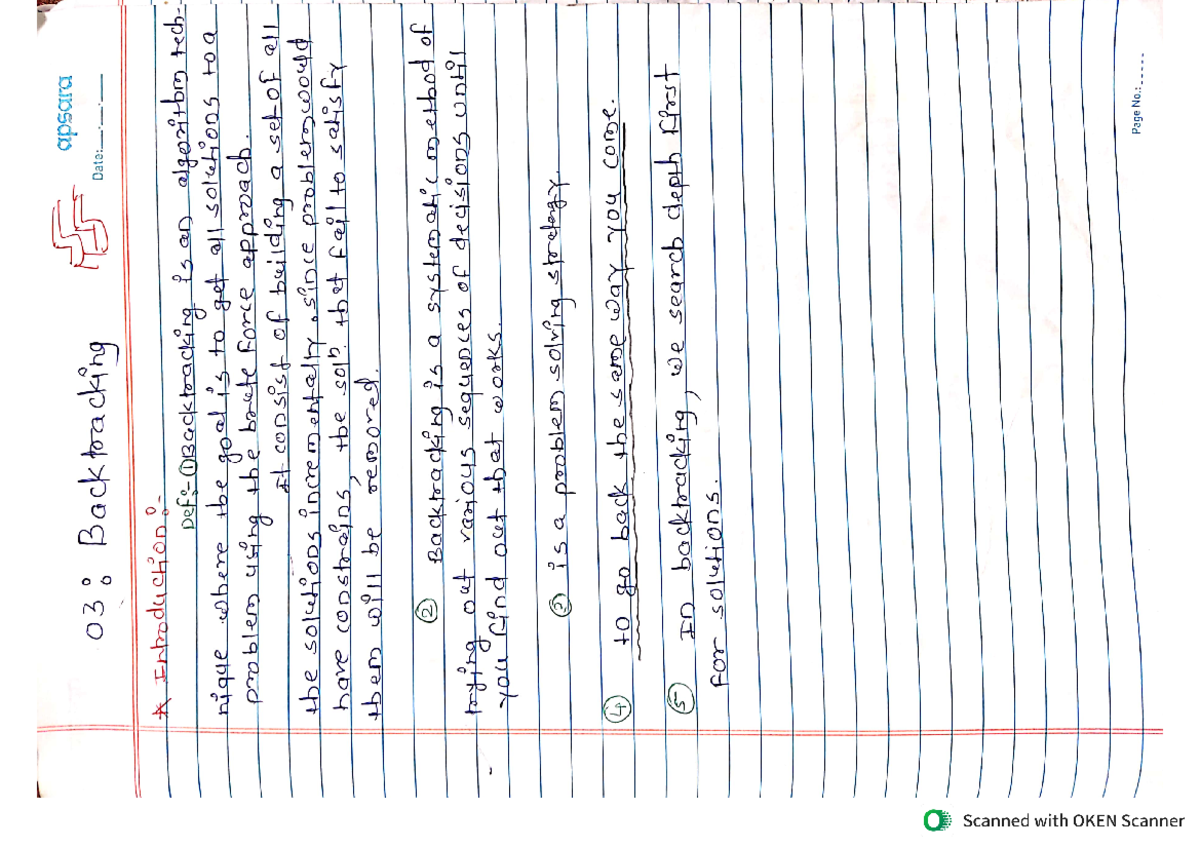 apsara
Date:__.__.__
03: Backtracking
* Introduction:-
Def:- ① Backtracking is an algorithm tech-
nique where the goal is to get all solutions to a
problem using the brute force approach.
It consist of building a set of all
the solutions incrementally. since problem would
have constrains, the soln. that fail to satisfy
them will be removed.
② Backtracking is a systematic method of
trying out various sequences of decisions until
you find out that works.
③ is a problem solving strategy.
④ to go back the same way you come.
⑤ In backtracking, we search depth first
for solutions.
Page No.: -----
Scanned with OKEN Scanner